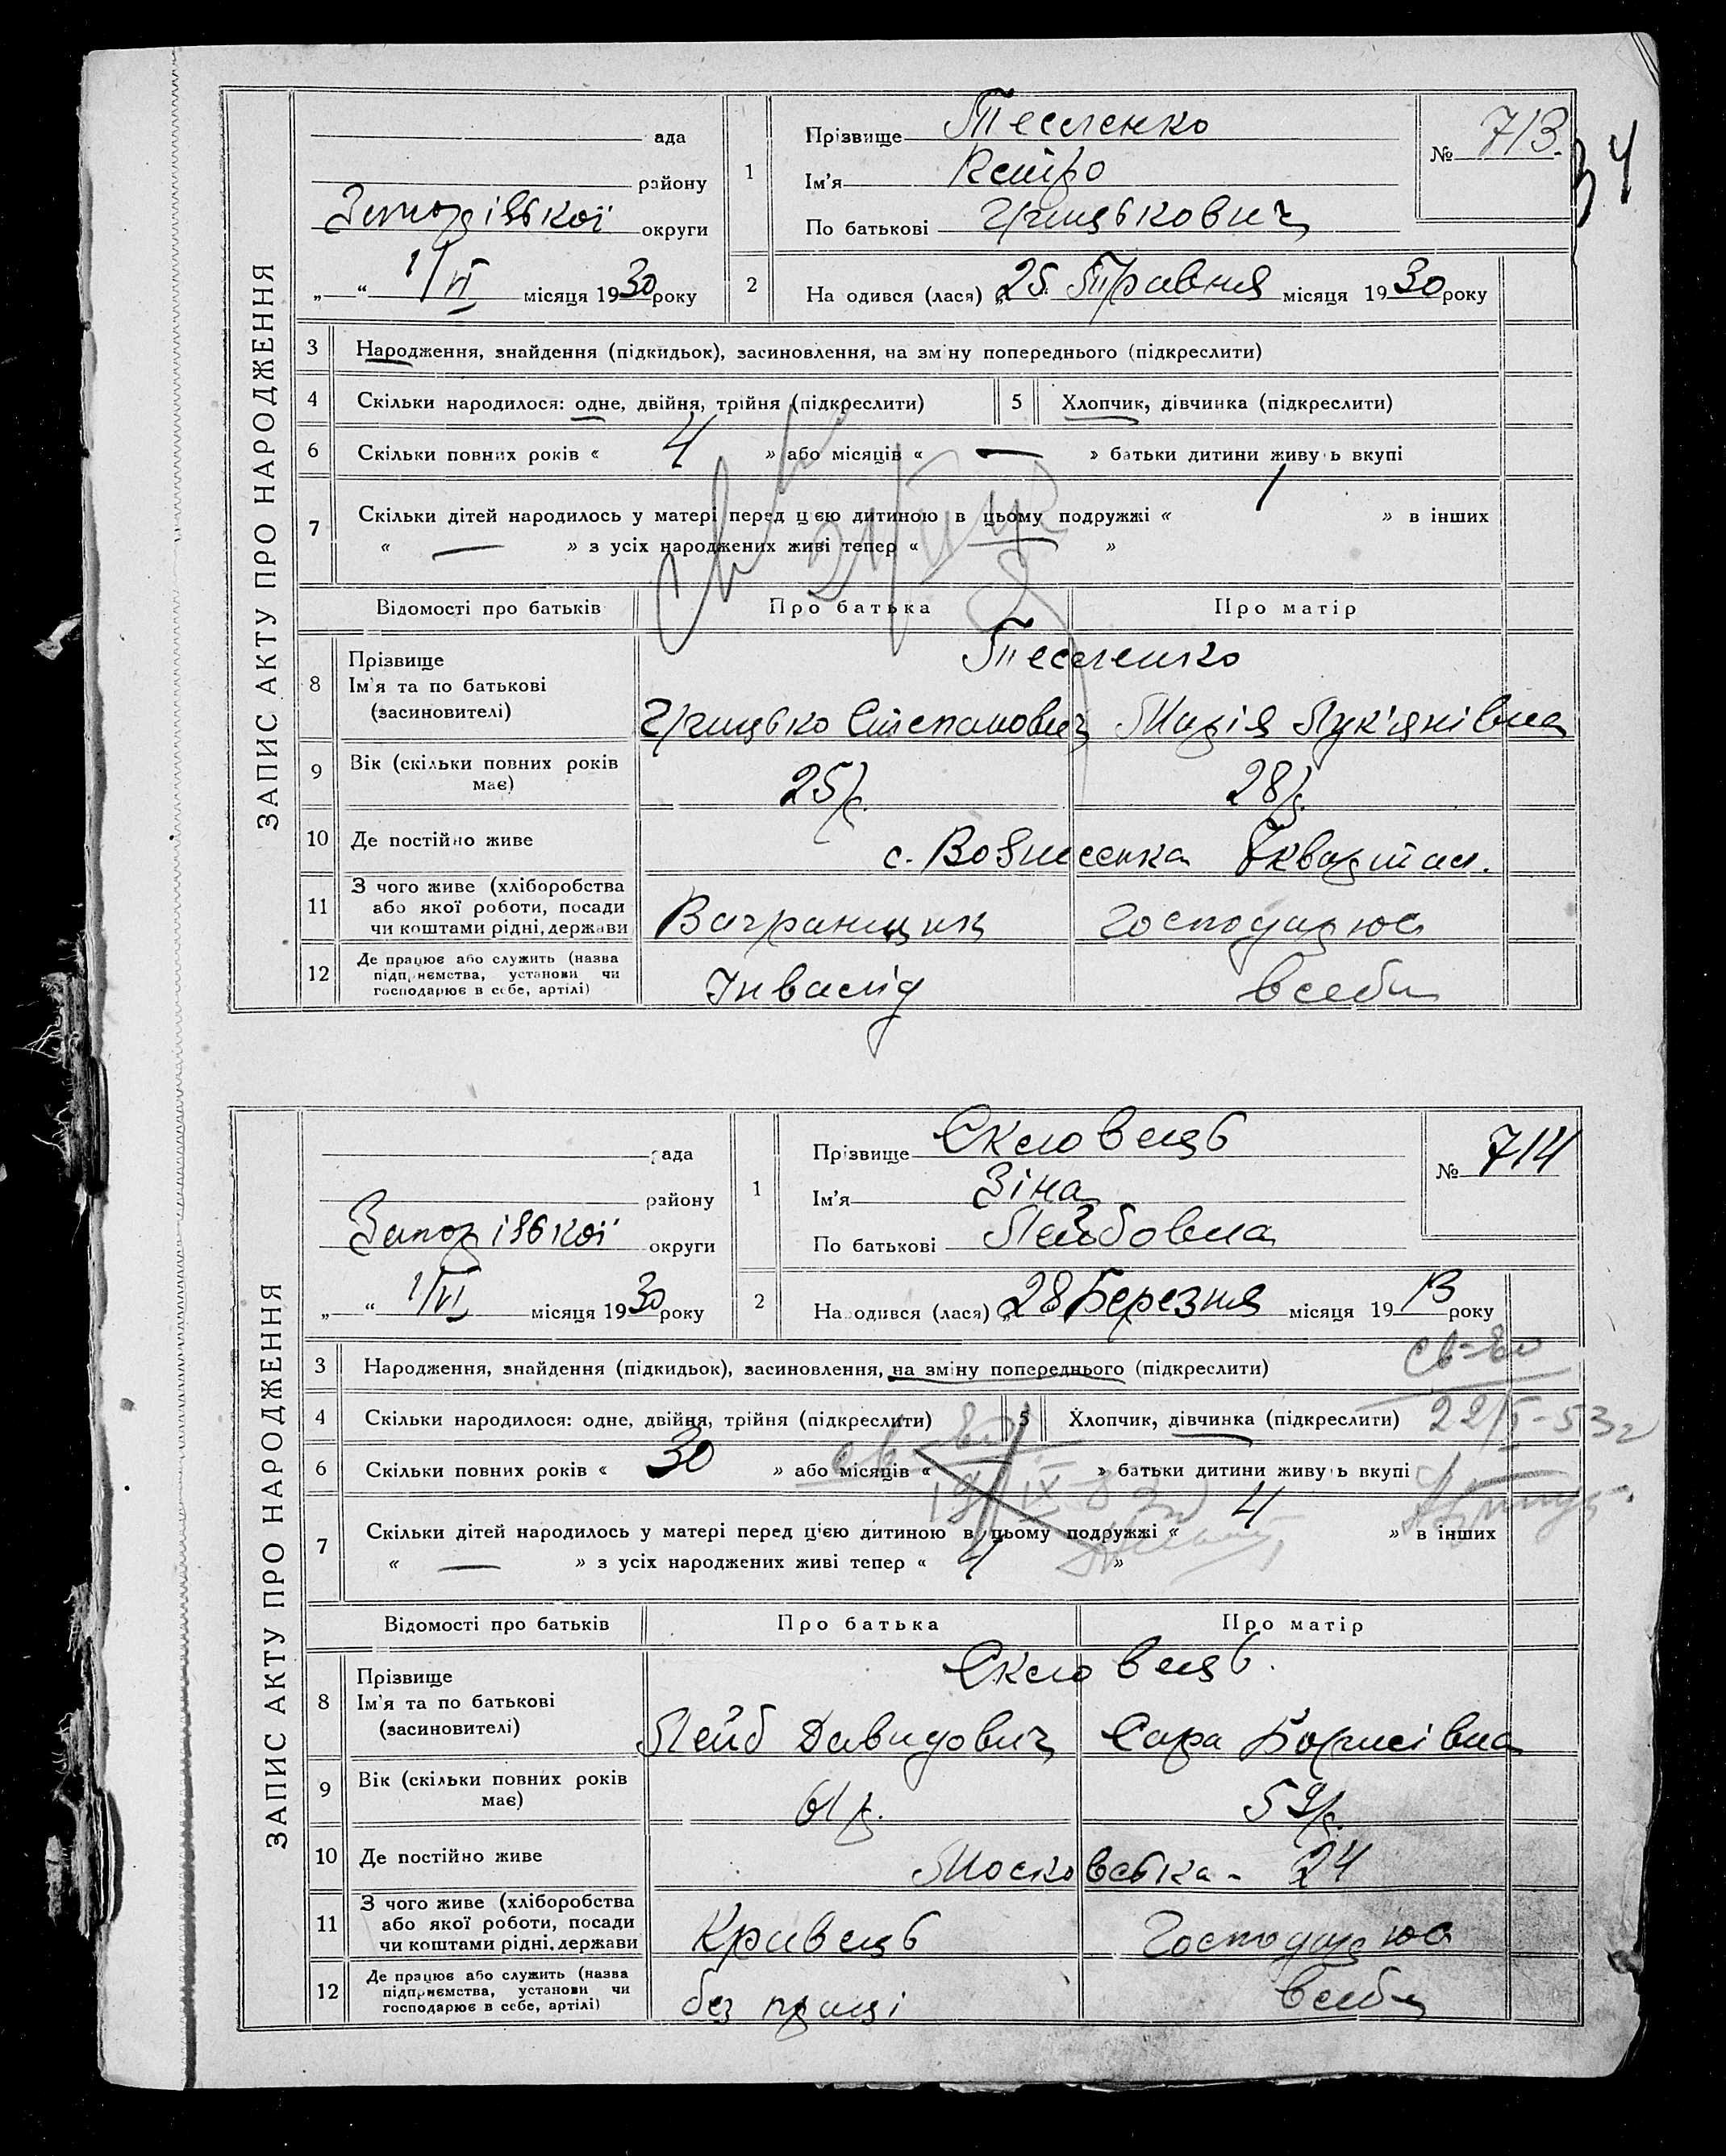 34
ЗАПИС АКТУ ПРО НАРОДЖЕННЯ
ада
району
Запорізької округи
„ “ 1/VI місяця 1930 року
1
Прізвище Тесленко
Ім'я Петро
По батькові Грицькович
№ 713.
2
На одився (лася) „25. Травня місяця 1930 року
3 Народження, знайдення (підкидьок), засиновлення, на зм ну попереднього (підкреслити)
4 Скільки народилося: одне, двійня, трійня (підкреслити) 5 Хлопчик, дівчинка (підкреслити)
6 Скільки повних років « 4 » або місяців « — » батьки дитини живу ь вкупі
7 Скільки дітей народилось у матері перед цією дитиною в цьому подружжі « 1 » в інших
« — » з усіх народжених живі тепер « »
Відомості про батьків Про батька Про матір
8 Прізвище Тесленко
Ім'я та по батькові
(засиновителі) Грицько Степанович Марія Лук'янівна
9 Вік (скільки повних років має) 25 р. 28 р.
10 Де постійно живе с. Вознесенка
11 З чого живе (хліборобства
або якої роботи, посади
чи коштами рідні, держави Вагранщик Господарює
12 Де працює або служить (назва
підприємства, установи чи
господарює в себе, артілі) Інвалід в себе
ЗАПИС АКТУ ПРО НАРОДЖЕННЯ
рада
району
Запорізької округи
„ “ 1/VI місяця 1930 року
1
Прізвище Скловець
Ім'я Зіна
По батькові Лейбовна
№ 714
2
На одився (лася) „28 Березня місяця 1913 року
3 Народження, знайдення (підкидьок), засиновлення, на зміну попереднього (підкреслити)
св-во
22/I-53г
4 Скільки народилося: одне, двійня, трійня (підкреслити) 5 Хлопчик, дівчинка (підкреслити)
6 Скільки повних років « 30 » або місяців « » батьки дитини живу ь вкупі
7 Скільки дітей народилось у матері перед цією дитиною в цьому подружжі « 4 » в інших
« — » з усіх народжених живі тепер « 4 »
Відомості про батьків Про батька Про матір
8 Прізвище Скловець.
Ім'я та по батькові
(засиновителі) Лейб Давидович Сара Борисівна
9 Вік (скільки повних років має) 61 р. 59 р.
10 Де постійно живе Московська - 24
11 З чого живе (хліборобства
або якої роботи, посади
чи коштами рідні, держави Кравець Господарює
12 Де працює або служить (назва
підприємства, установи чи
господарює в себе, артілі) без праці в себе